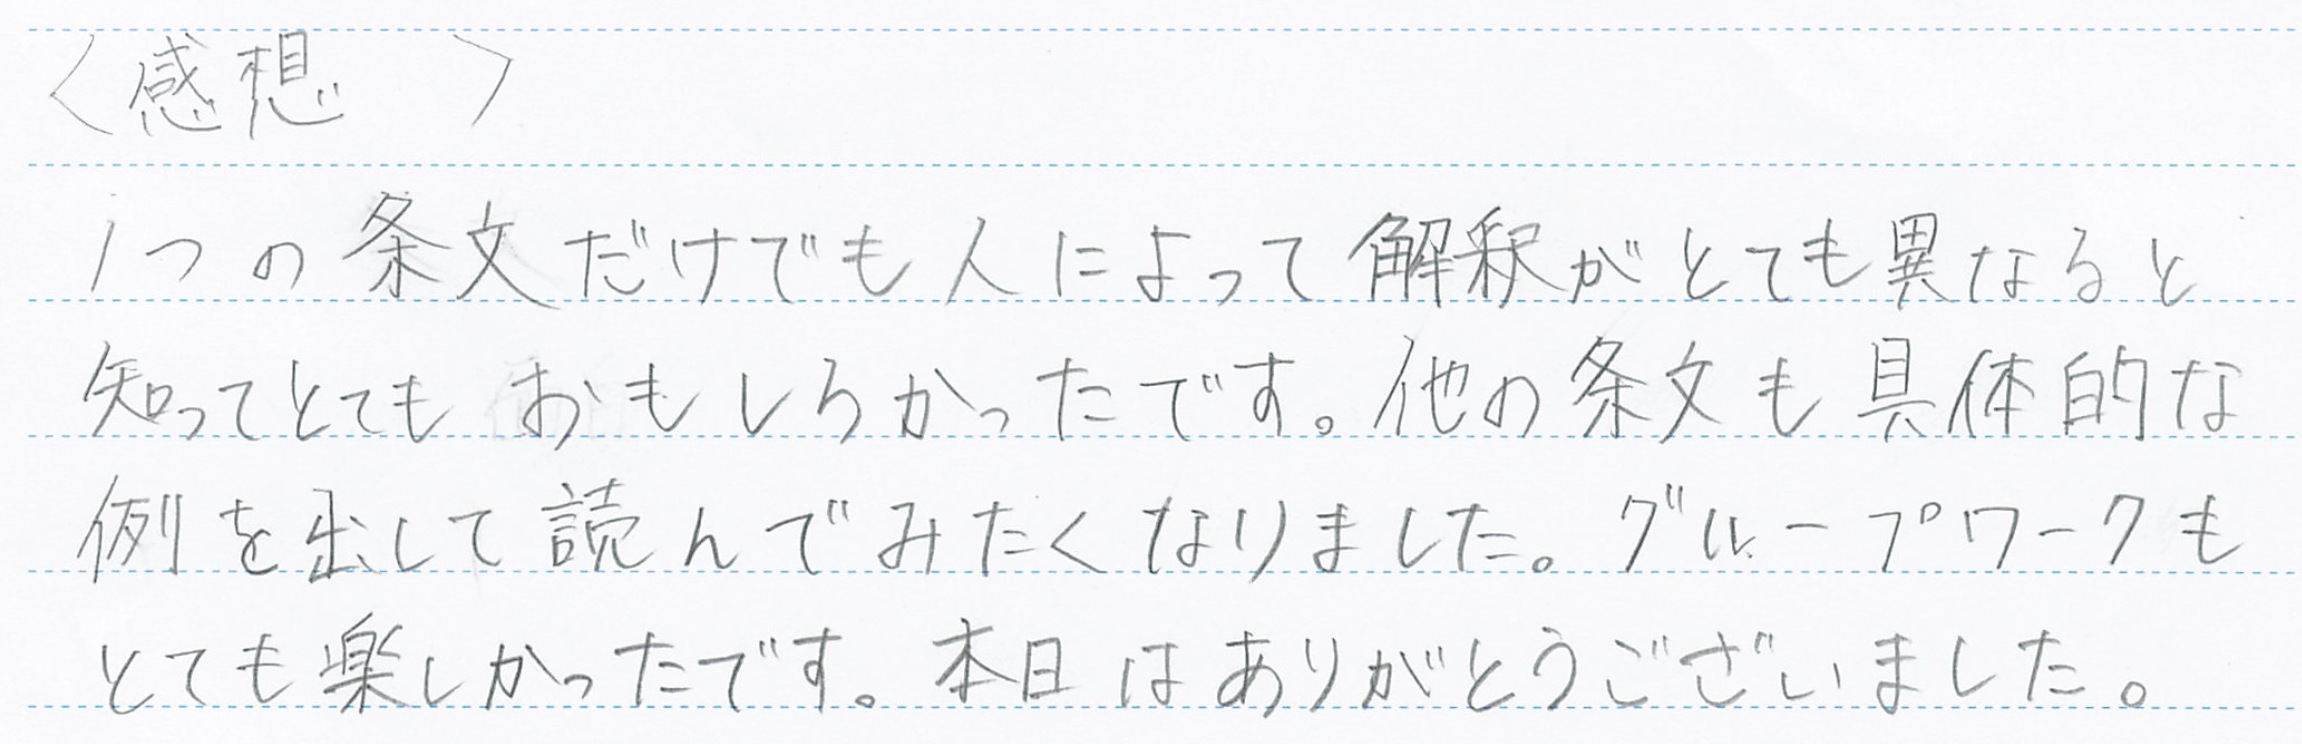 〈感想　〉
1つの条文だけでも人によって解釈がとても異なると
知ってとてもおもしろかったです。他の条文も具体的な
例を出して読んでみたくなりました。グループワークも
とても楽しかったです。本日はありがとうございました。